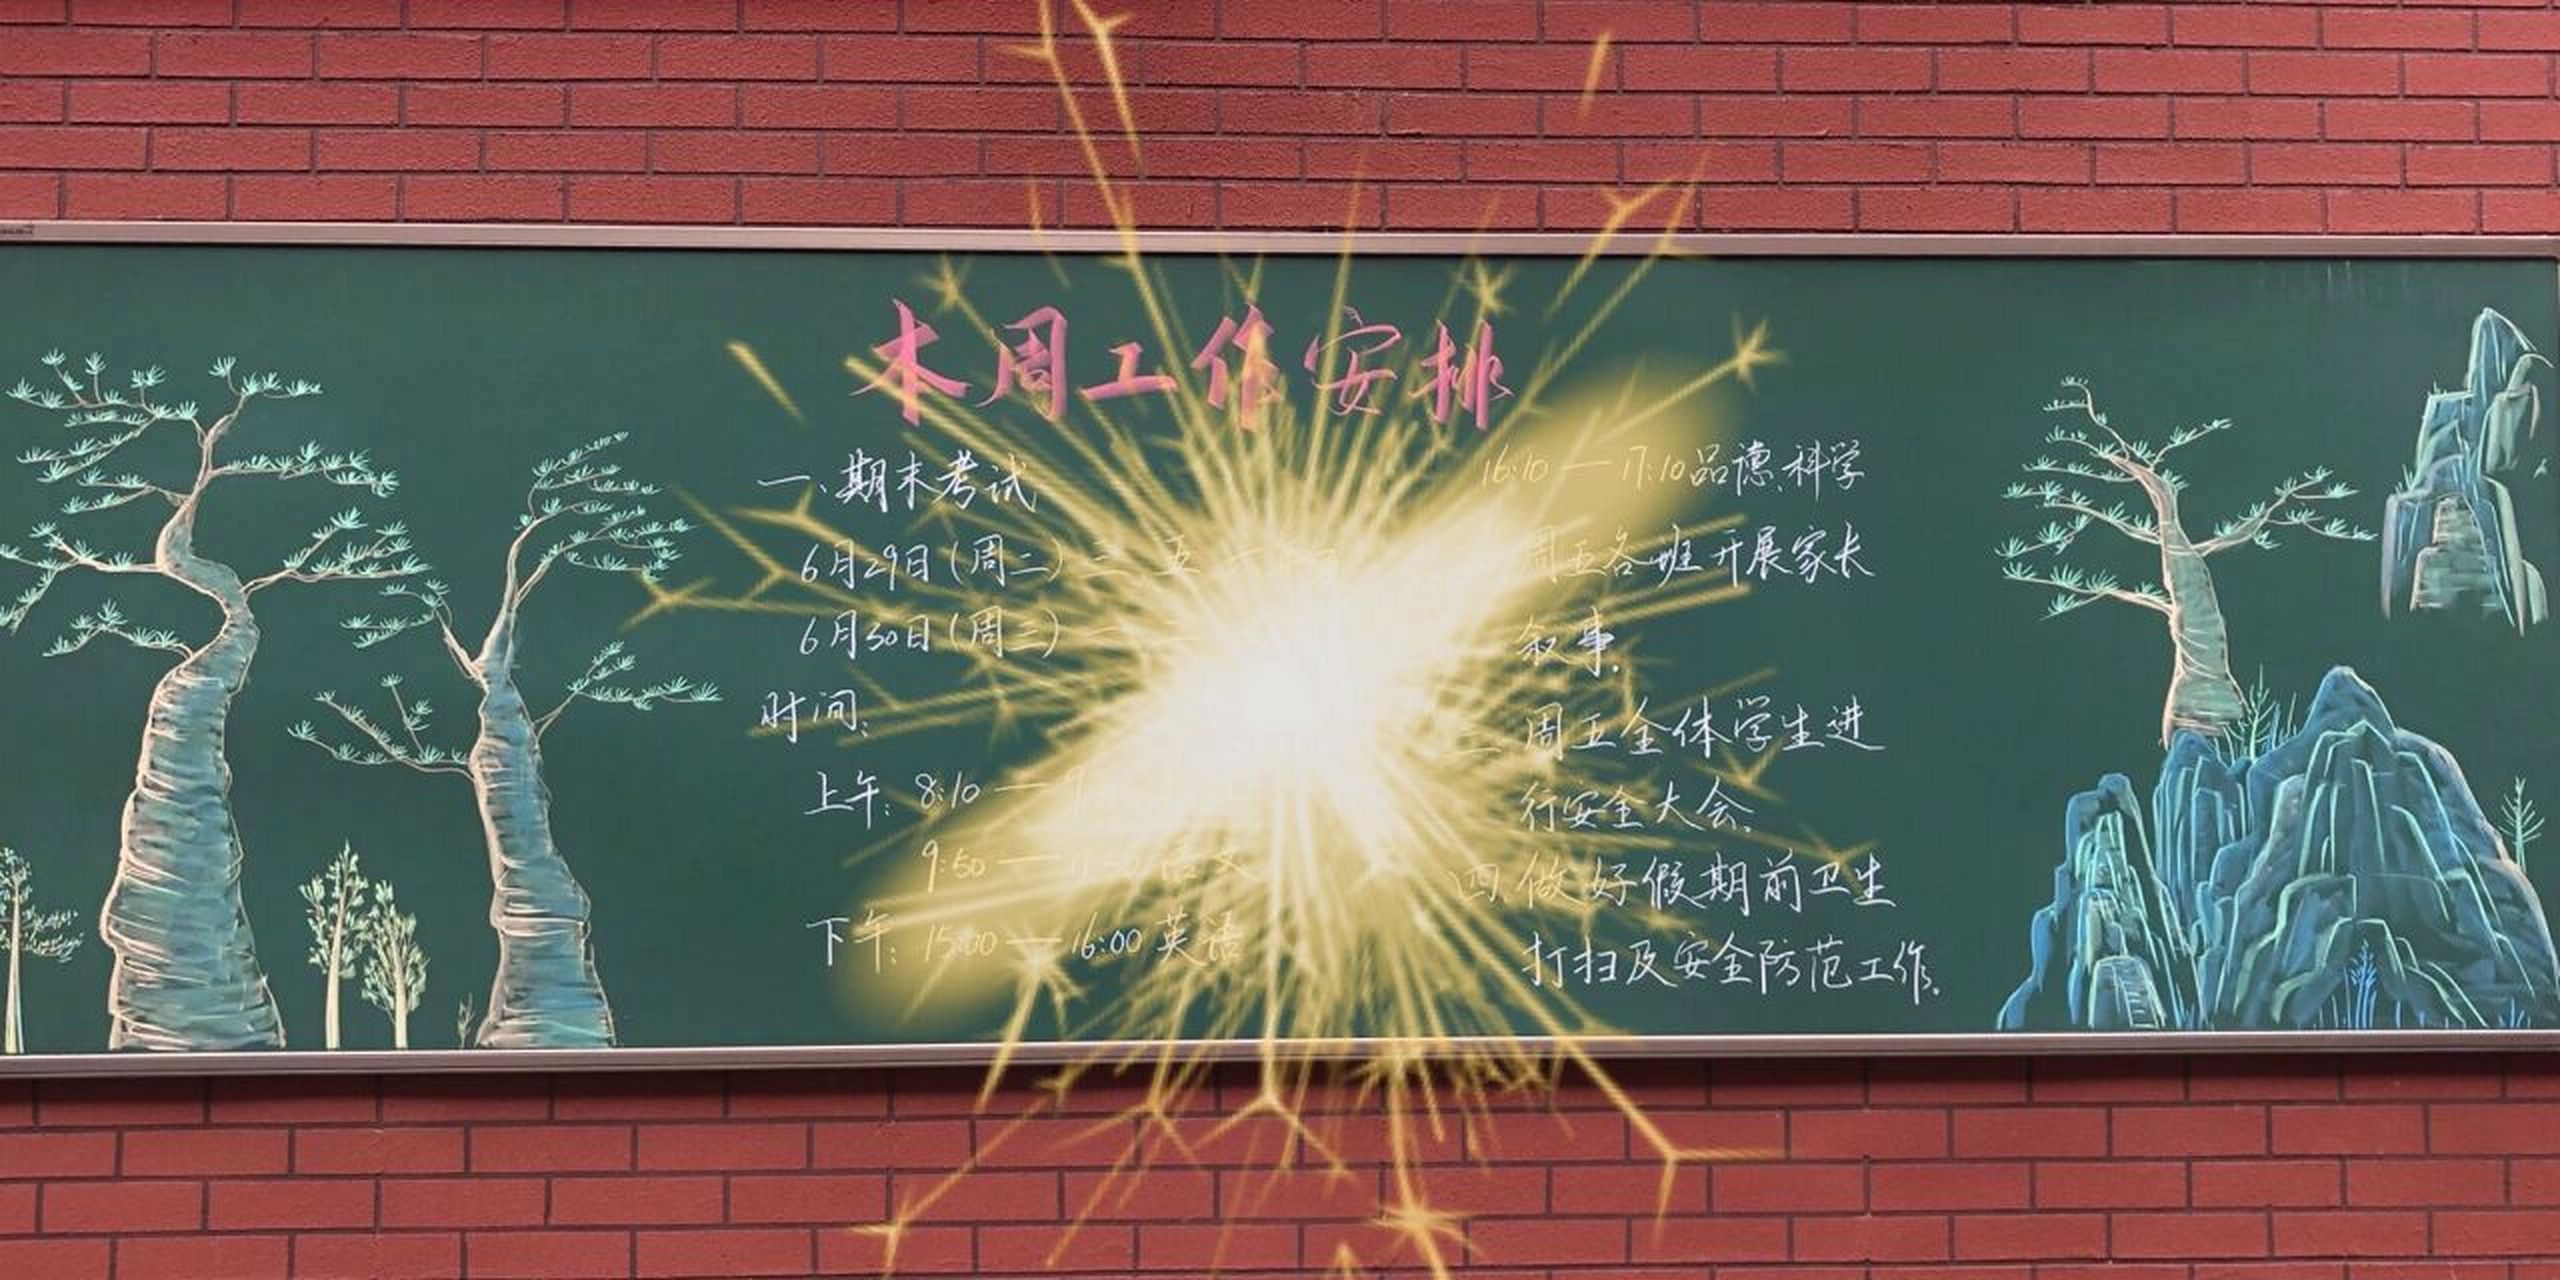 本周工作安排
一、期末考试
6月29日(周二)三、五
6月30日(周三)
时间:
上午: 8:10 — 9
9:50 —
下午: 15:00 — 16:00 英语
16:10 — 17:10 品德、科学
周五各班开展家长
叙事.
周五全体学生进
行安全大会.
四 做好假期前卫生
打扫及安全防范工作.